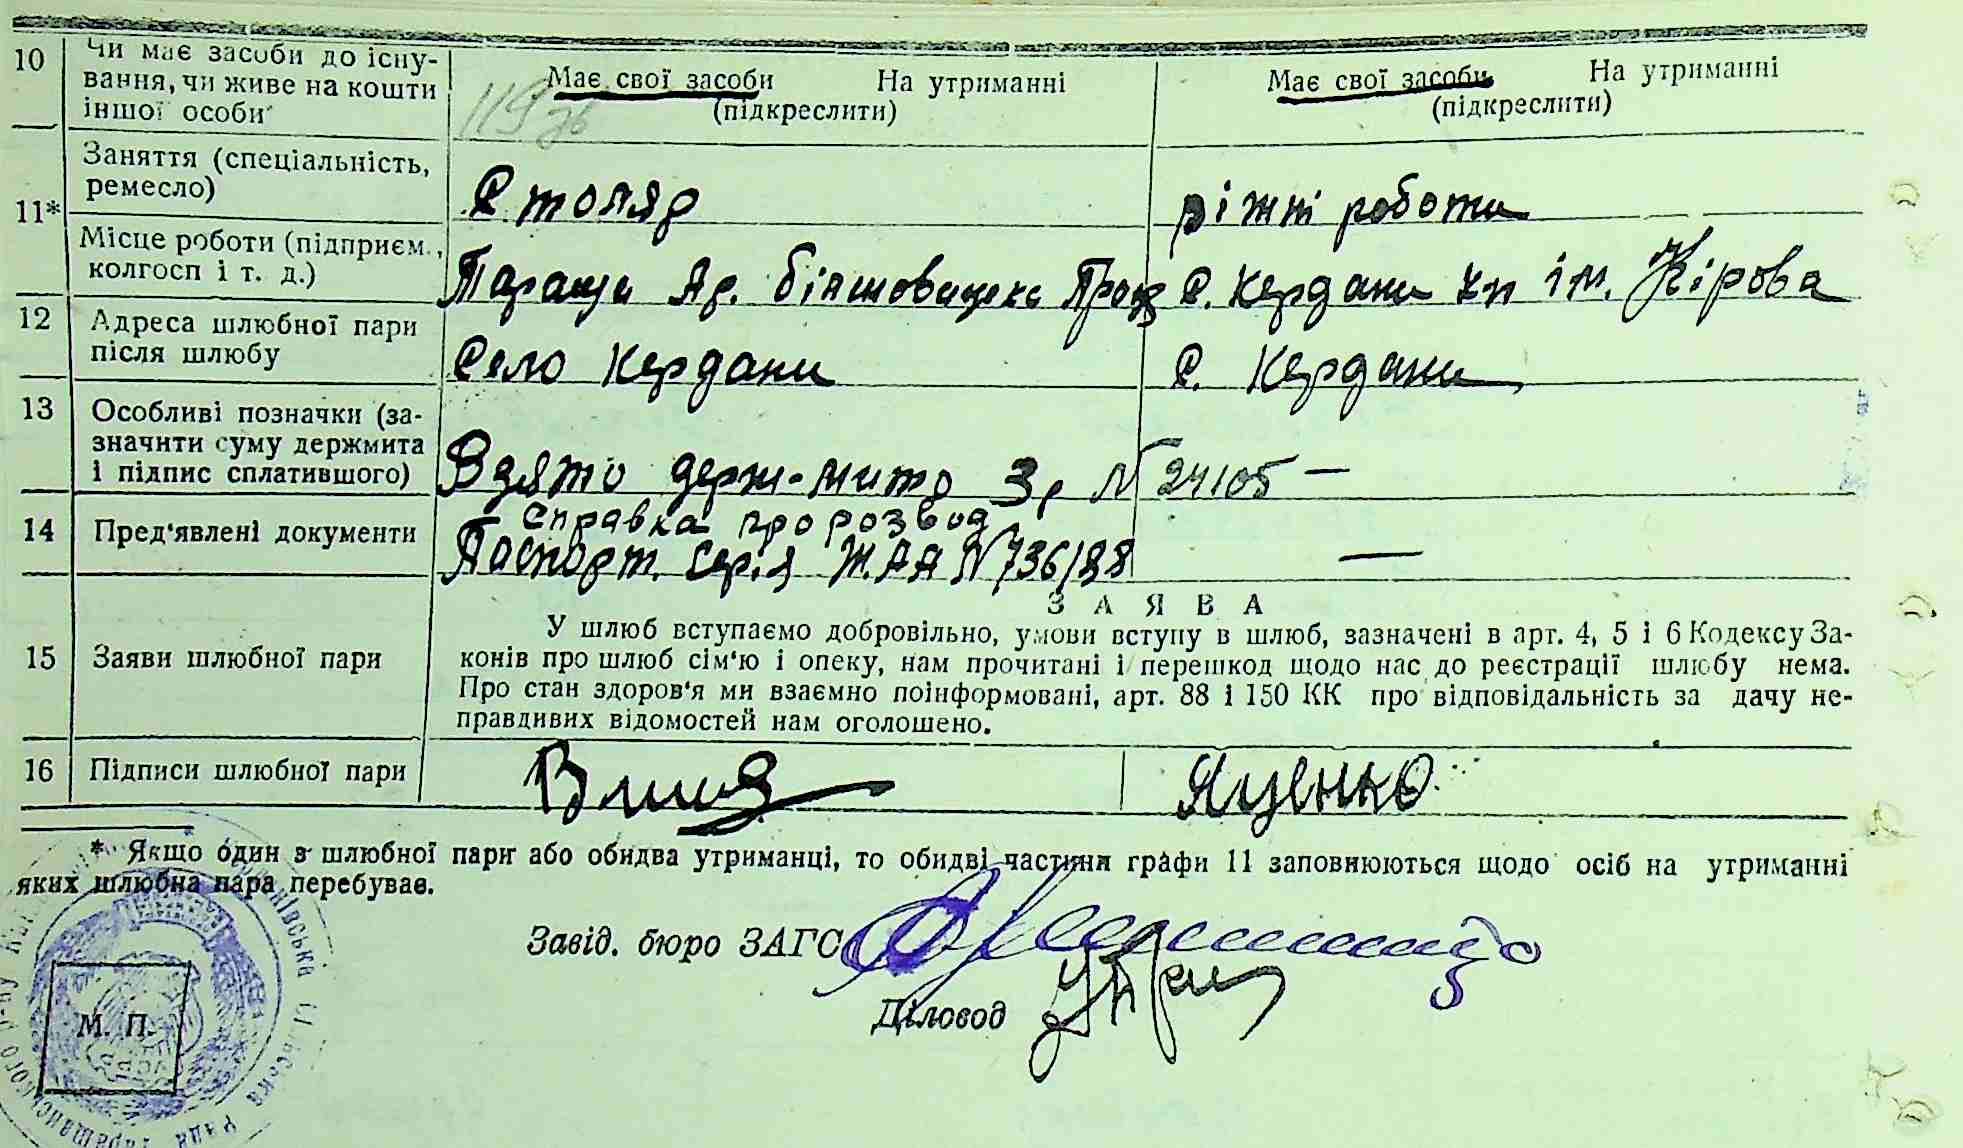 10 Чи має засоби до існу-
вання, чи живе на кошти
іншої особи
Має свої засоби На утриманні
(підкреслити)
Має свої засоби На утриманні
(підкреслити)
11*
Заняття (спеціальність,
ремесло)
Столяр
ріжні роботи
Місце роботи (підприєм.,
колгосп і т. д.)
Тараща
с. Кердани кп ім. Кірова
12 Адреса шлюбної пари
після шлюбу
Село Кердани
с. Кердани
13 Особливі позначки (за-
значити суму держмита
і підпис сплатившого)
Взято держ-мито 3р N 24105 —
14 Пред'явлені документи
справка про розвод
Паспорт. серія Ж.АА N 736188
—
15 Заяви шлюбної пари
ЗАЯВА
У шлюб вступаємо добровільно, умови вступу в шлюб, зазначені в арт. 4, 5 і 6 Кодексу За-
конів про шлюб сім'ю і опеку, нам прочитані і перешкод щодо нас до реєстрації шлюбу нема.
Про стан здоров'я ми взаємно поінформовані, арт. 88 і 150 КК про відповідальність за дачу не-
правдивих відомостей нам оголошено.
16 Підписи шлюбної пари
Яценко
* Якщо один з шлюбної пари або обидва утриманці, то обидві частини графи 11 заповнюються щодо осіб на утриманні
яких шлюбна пара перебуває.
Завід. бюро ЗАГС
Діловод
М. П.